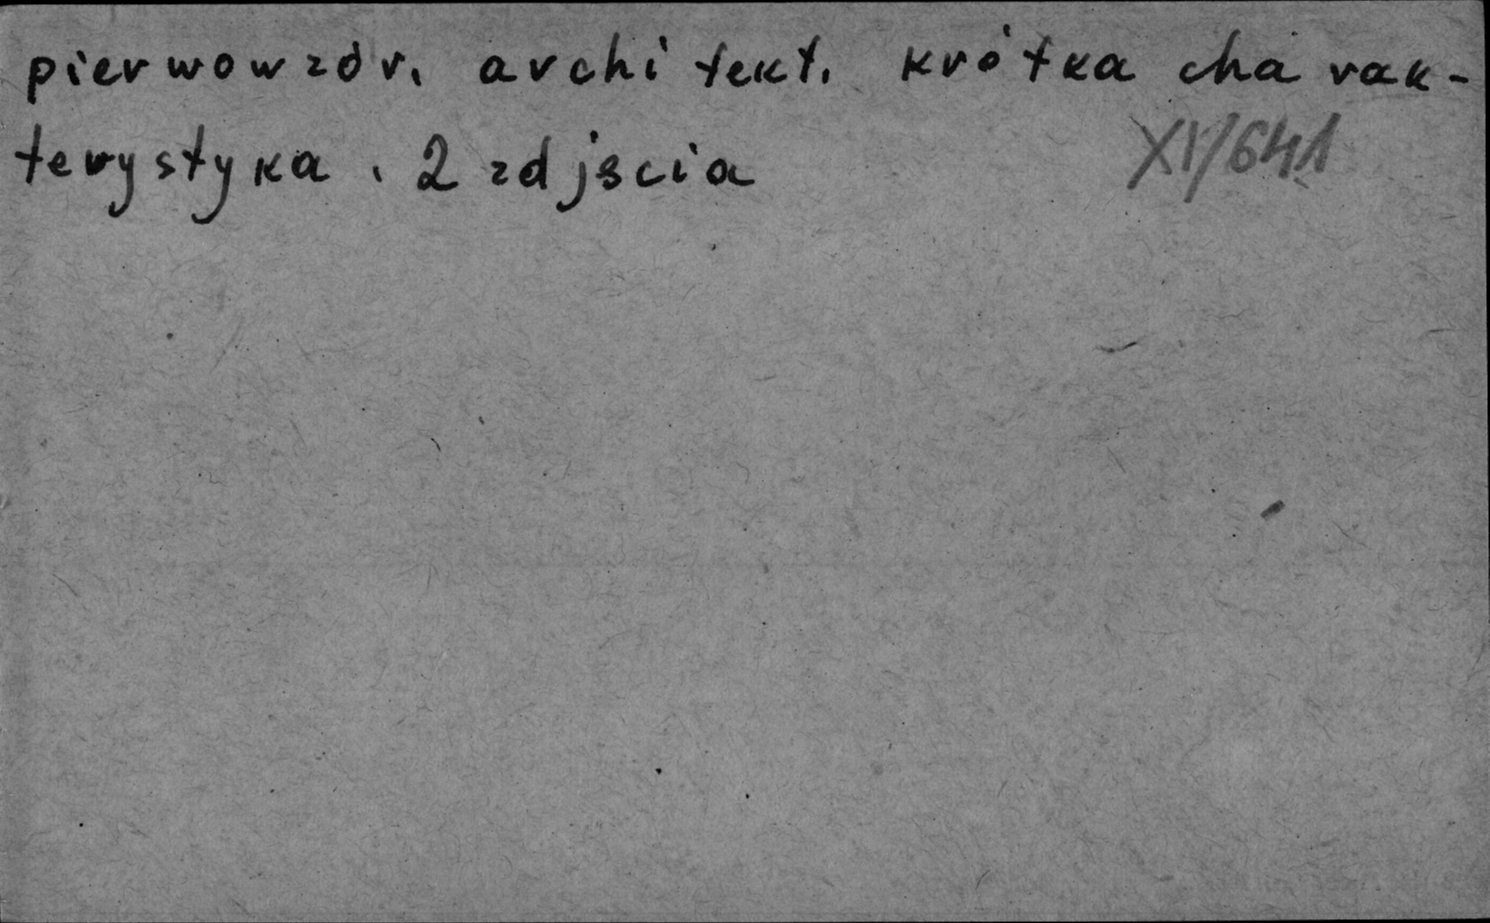 pierwowzór. architekt. krótka charak-
terystyka. 2 zdjscia
XV/641